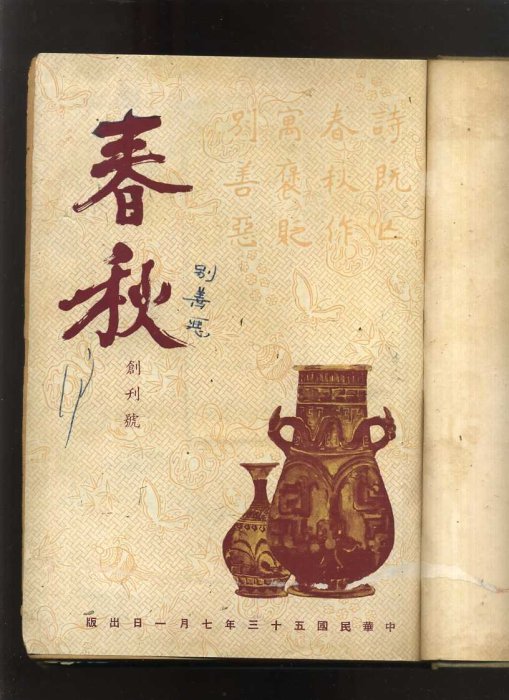 詩既亡
春秋作
寓褒貶
別善惡
春秋
創刊號
别善惡
中華民國五十三年七月一日出版